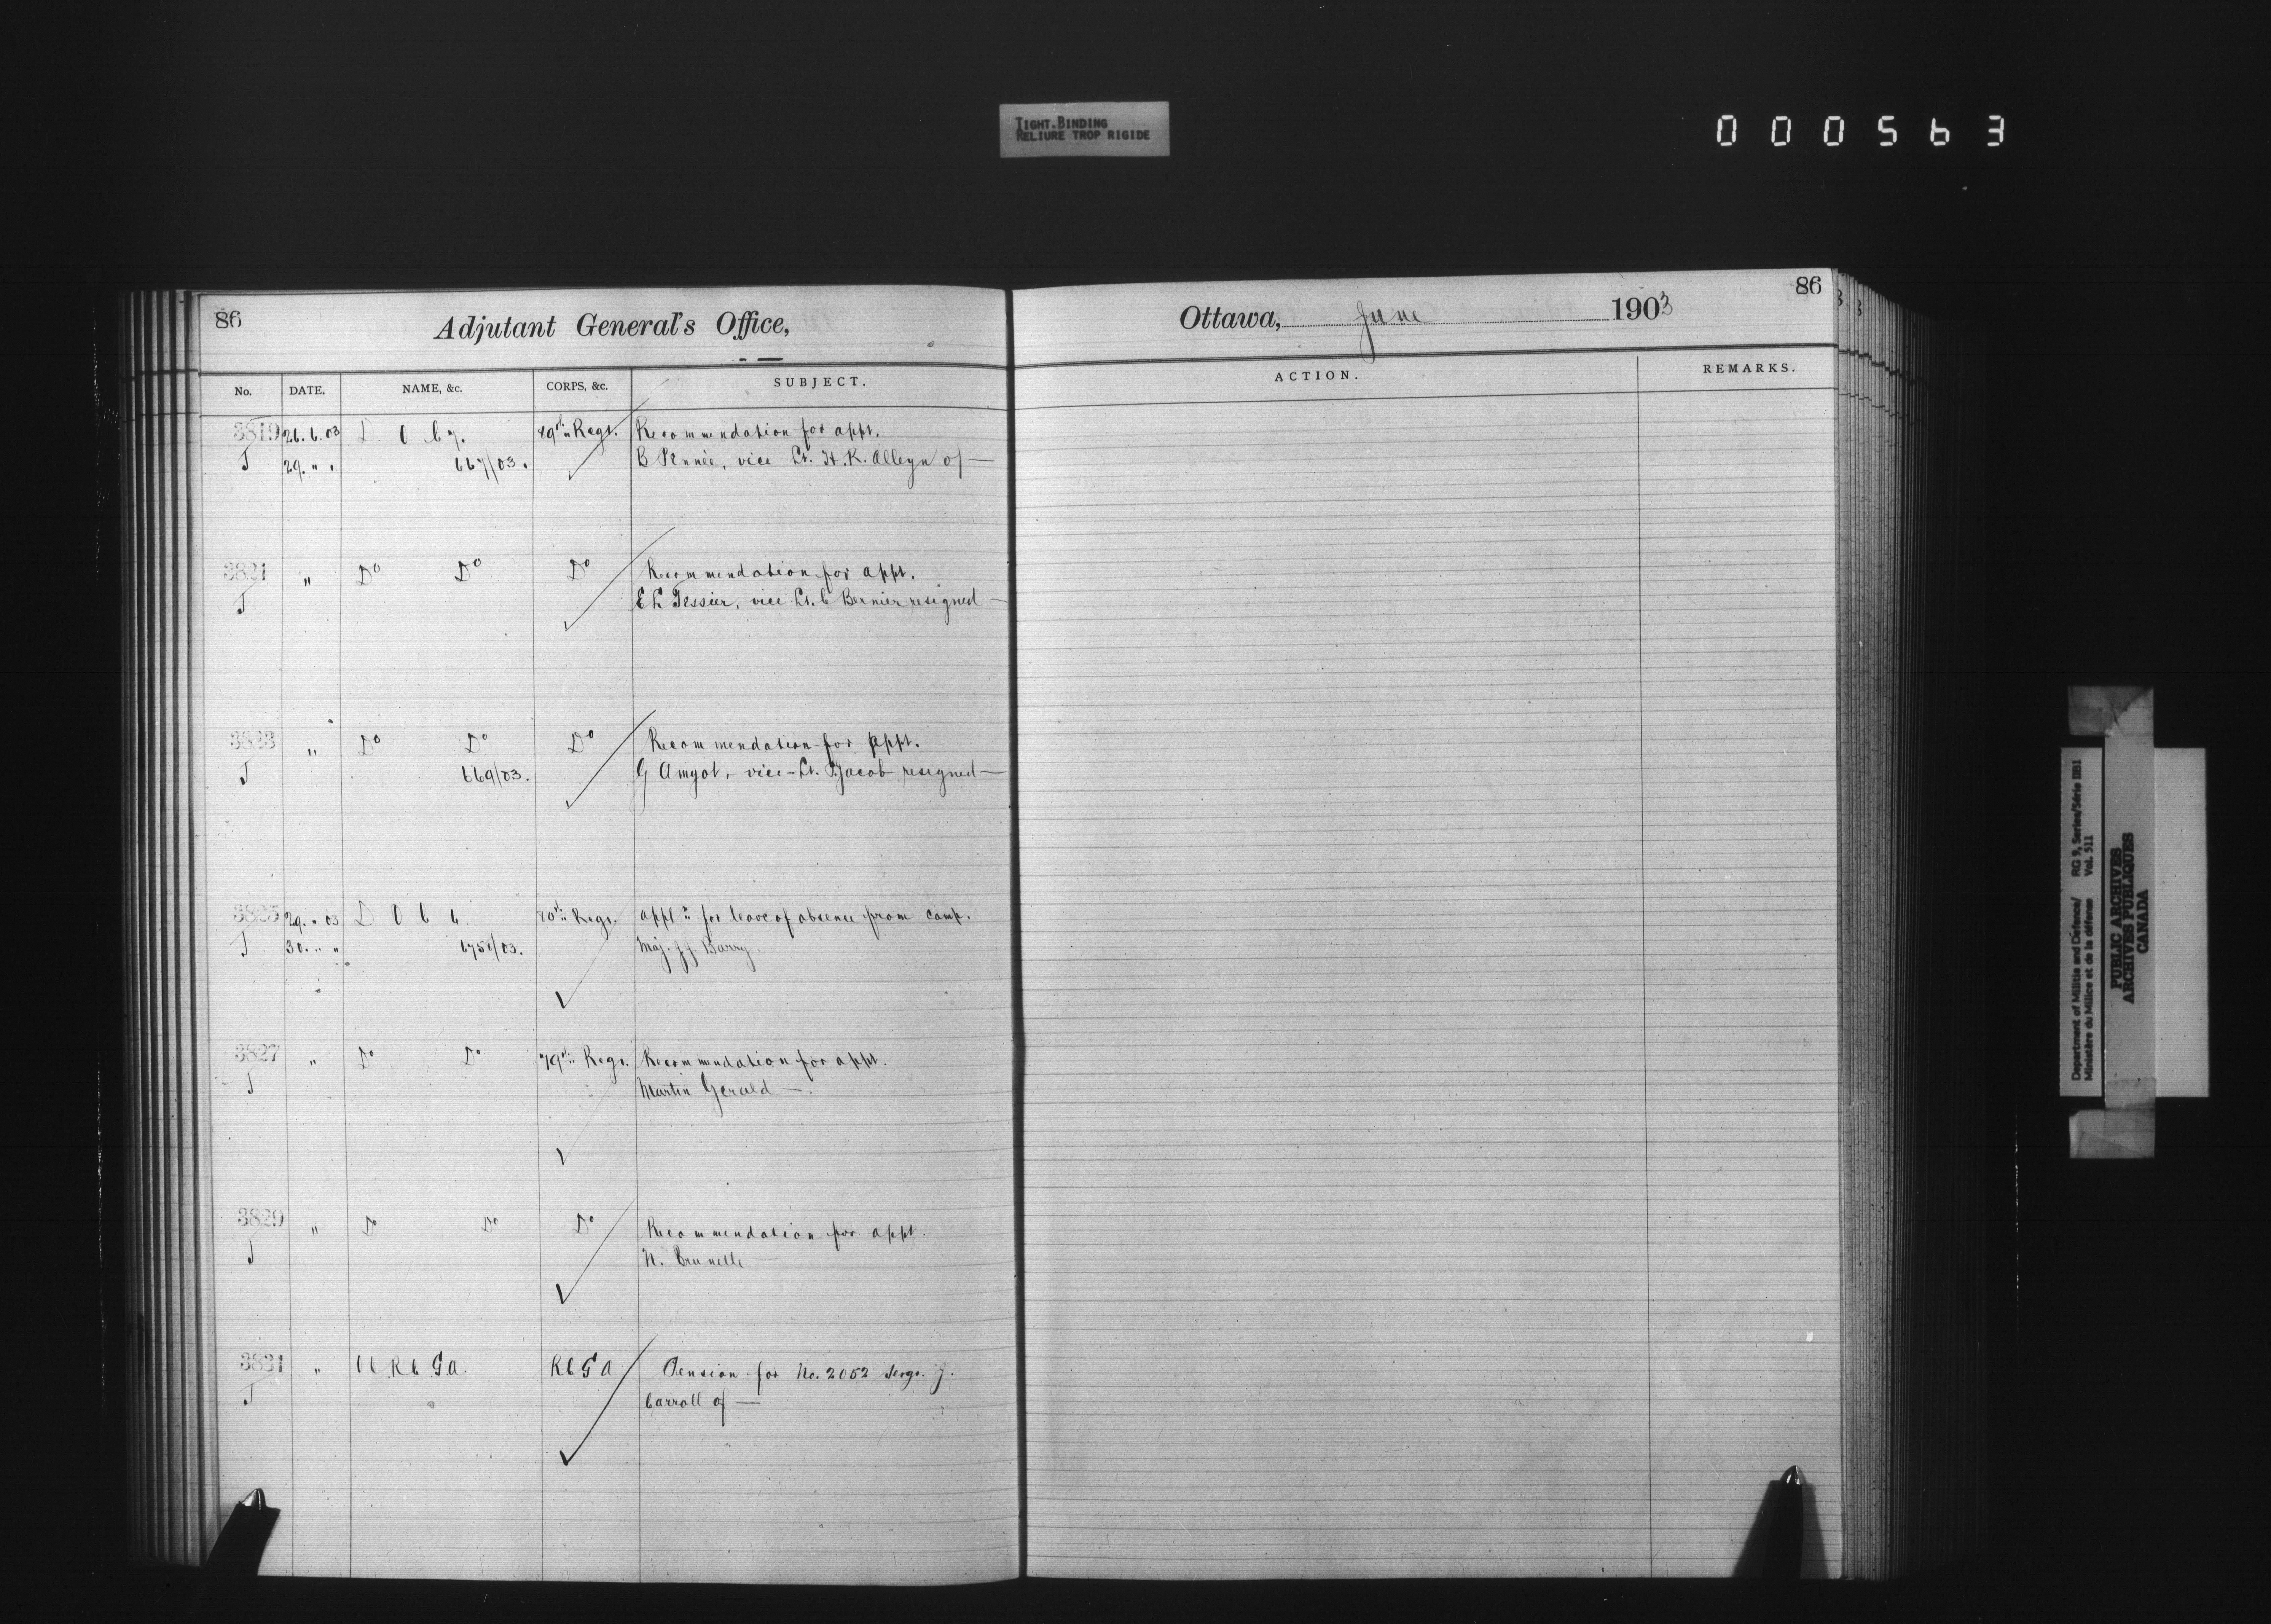 TIGHT BINDING
RELIURE TROP RIGIDE
000563
86
Adjutant General's Office,
No. DATE. NAME, &c. CORPS, &c. SUBJECT.
3819 26.6.03 D O C 7. Regt. Recommendation for appt.
J 29. " " 667/03. B Pennée, vice Lt. H.K. Alleyn of —
3821 " Do Do Do Recommendation for appt.
J E L Tessier, vice Lt. C Bernier resigned —
3823 " Do Do Do Recommendation for appt.
J 669/03. G Amyot, vice Lt. Jacob resigned —
3825 29. " 03 D O C 6 Regt. appln for leave of absence from camp.
J 30. " " Maj. J.J. Barry
3827 " Do Do 79th Regt. Recommendation for appt.
J Martin Gerald —
3829 " Do Do Do Recommendation for appt.
J N. Brunelle —
3831 " R C G.A. R C G A Pension for No. 2052 Sergt. J.
J Carroll of —
86
Ottawa, June 1903
ACTION. REMARKS.
Department of Militia and Defence/ RG 9, Series/Série IIB1
Ministère du Milice et de la défense Vol. 511
PUBLIC ARCHIVES
ARCHIVES PUBLIQUES
CANADA